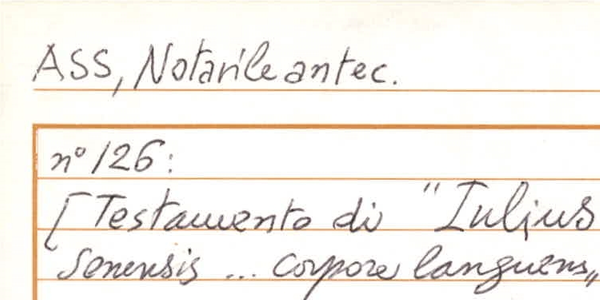 ASS, Notarile antec.
n° 126:
[Testamento di "Iulius
Senensis ... corpore languens„